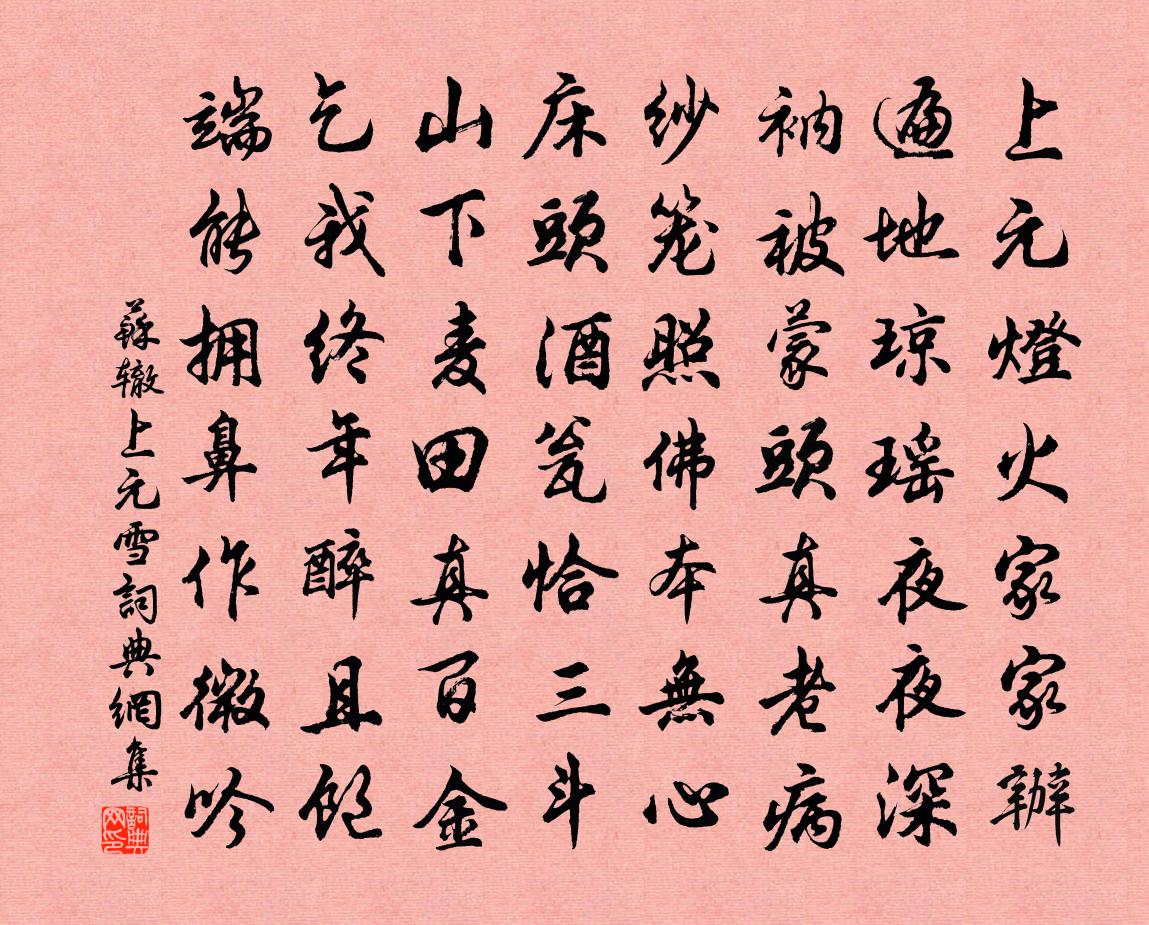 上元燈火家家辦
遍地琼瑶夜夜深
衲被蒙頭真老病
紗笼照佛本無心
床頭酒瓮恰三斗
山下麦田真百金
乞我终年醉且飽
端能拥鼻作微吟
蘇辙上元雪詞典網集
詞典网印